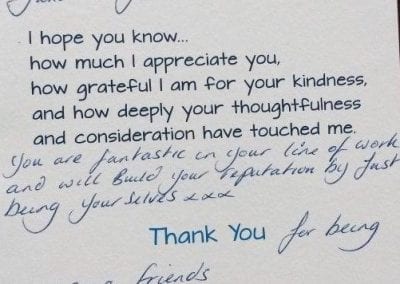 I hope you know...
how much I appreciate you,
how grateful I am for your kindness,
and how deeply your thoughtfulness
and consideration have touched me.
You are fantastic in your line of work
and will Build your reputation by Just
being your selves xxx
Thank You for being
friends